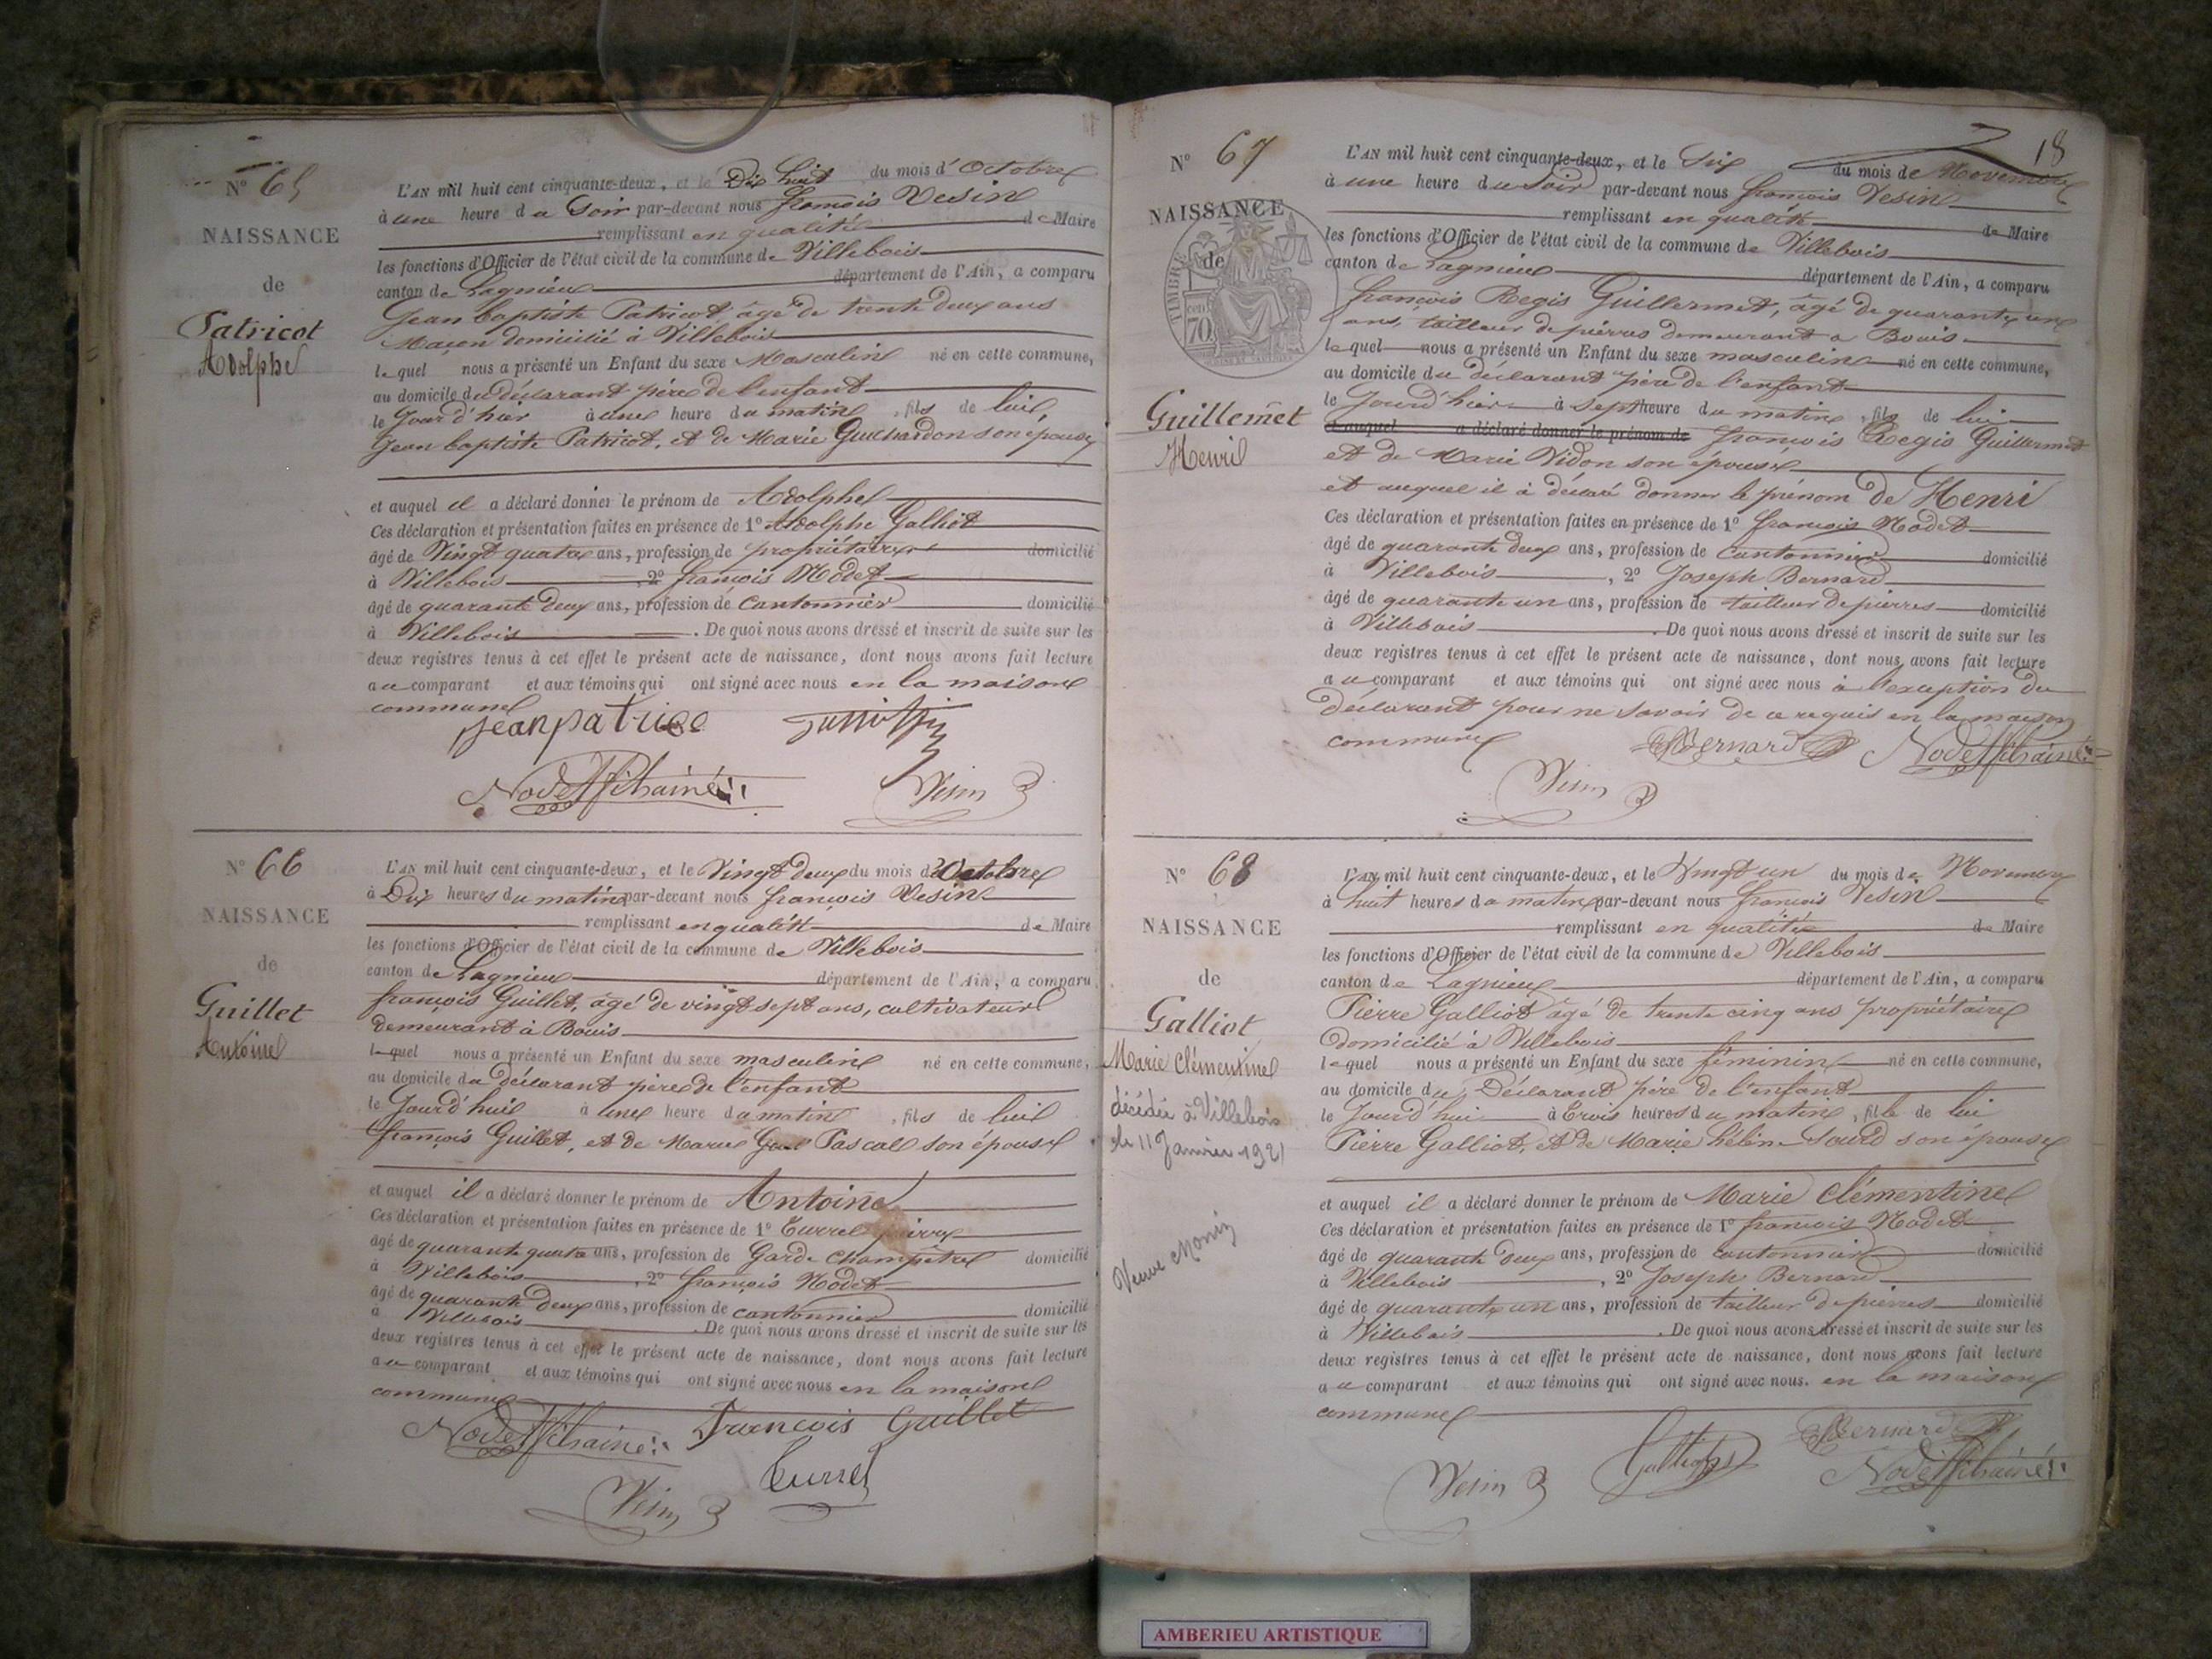 N° 65
NAISSANCE
de
Patricot
Adolphe
L'AN mil huit cent cinquante-deux, et le Dix huit du mois d'Octobre
à une heure du Soir par-devant nous françois Vesin
remplissant en qualité de Maire
les fonctions d'Officier de l'état civil de la commune de Villebois
canton de Lagnieu département de l'Ain, a comparu
Jean baptiste Patricot, âgé de trente deux ans
Maçon domicilié à Villebois
lequel nous a présenté un Enfant du sexe Masculin né en cette commune,
au domicile du déclarant père de l'enfant
le Jour d'hier à une heure du matin, fils de lui,
Jean baptiste Patricot, et de Marie Guichardon son épouse
et auquel il a déclaré donner le prénom de Adolphe
Ces déclaration et présentation faites en présence de 1° Adolphe Galliot
âgé de Vingt quatre ans, profession de propriétaire domicilié
à Villebois, 2° françois Nodet
âgé de quarante deux ans, profession de Cantonnier domicilié
à Villebois. De quoi nous avons dressé et inscrit de suite sur les
deux registres tenus à cet effet le présent acte de naissance, dont nous avons fait lecture
au comparant et aux témoins qui ont signé avec nous en la maison
commune
jean patrico
Nodet fils ainé
Vesin
N° 66
NAISSANCE
de
Guillet
Antoine
L'AN mil huit cent cinquante-deux, et le Vingt deux du mois d'Octobre
à Dix heures du matin par-devant nous françois Vesin
remplissant en qualité de Maire
les fonctions d'Officier de l'état civil de la commune de Villebois
canton de Lagnieu département de l'Ain, a comparu
françois Guillet, âgé de vingt sept ans, cultivateur
demeurant à Bouis
lequel nous a présenté un Enfant du sexe masculin né en cette commune,
au domicile du déclarant père de l'enfant
le Jourd'hui à une heure du matin, fils de lui
françois Guillet, et de Marie Pascal son épouse
et auquel il a déclaré donner le prénom de Antoine
Ces déclaration et présentation faites en présence de 1° Turrel pierre
âgé de quarante quatre ans, profession de Garde Champêtre domicilié
à Villebois, 2° françois Nodet
âgé de quarante deux ans, profession de cantonnier domicilié
à Villebois. De quoi nous avons dressé et inscrit de suite sur les
deux registres tenus à cet effet le présent acte de naissance, dont nous avons fait lecture
au comparant et aux témoins qui ont signé avec nous en la maison
commune
Nodet fils ainé francois Guillet
Vesin Turrel
18
N° 67
NAISSANCE
de
TIMBRE
70
Guillermet
Henri
L'AN mil huit cent cinquante-deux, et le Six du mois de Novembre
à une heure du Soir par-devant nous françois Vesin
remplissant en qualité de Maire
les fonctions d'Officier de l'état civil de la commune de Villebois
canton de Lagnieu département de l'Ain, a comparu
françois Regis Guillermet, âgé de quarante un
ans, tailleur de pierres demeurant a Bouis
lequel nous a présenté un Enfant du sexe masculin né en cette commune,
au domicile du déclarant père de l'enfant
le Jourd'hier à sept heure du matin, fils de lui
et auquel a déclaré donner le prénom de françois Regis Guillermet
et de Marie Vidon son épouse
et auquel il à déclaré donner le prénom de Henri
Ces déclaration et présentation faites en présence de 1° françois Nodet
âgé de quarante deux ans, profession de Cantonnier domicilié
à Villebois, 2° Joseph Bernard
âgé de quarante un ans, profession de tailleur de pierres domicilié
à Villebois. De quoi nous avons dressé et inscrit de suite sur les
deux registres tenus à cet effet le présent acte de naissance, dont nous avons fait lecture
au comparant et aux témoins qui ont signé avec nous à l'exception du
déclarant pour ne savoir de ce requis en la maison
commune Bernard Nodet fils ainé
Vesin
N° 68
NAISSANCE
de
Galliot
Marie Clémentine
décédée à Villebois
le 11 Janvier 1921
Veuve
L'AN mil huit cent cinquante-deux, et le Vingt un du mois de Novembre
à huit heures du matin par-devant nous françois Vesin
remplissant en qualité de Maire
les fonctions d'Officier de l'état civil de la commune de Villebois
canton de Lagnieu département de l'Ain, a comparu
Pierre Galliot âgé de trente cinq ans propriétaire
domicilié à Villebois
lequel nous a présenté un Enfant du sexe féminin né en cette commune,
au domicile du Déclarant père de l'enfant
le Jourd'hui à Trois heures du matin, fille de lui
Pierre Galliot, et de Marie hélène Sourd son épouse
et auquel il a déclaré donner le prénom de Marie Clémentine
Ces déclaration et présentation faites en présence de 1° françois Nodet
âgé de quarante deux ans, profession de cantonnier domicilié
à Villebois, 2° Joseph Bernard
âgé de quarante un ans, profession de tailleur de pierres domicilié
à Villebois. De quoi nous avons dressé et inscrit de suite sur les
deux registres tenus à cet effet le présent acte de naissance, dont nous avons fait lecture
au comparant et aux témoins qui ont signé avec nous. en la maison
commune
Bernard
Vesin Galliot Nodet fils ainé
AMBERIEU ARTISTIQUE